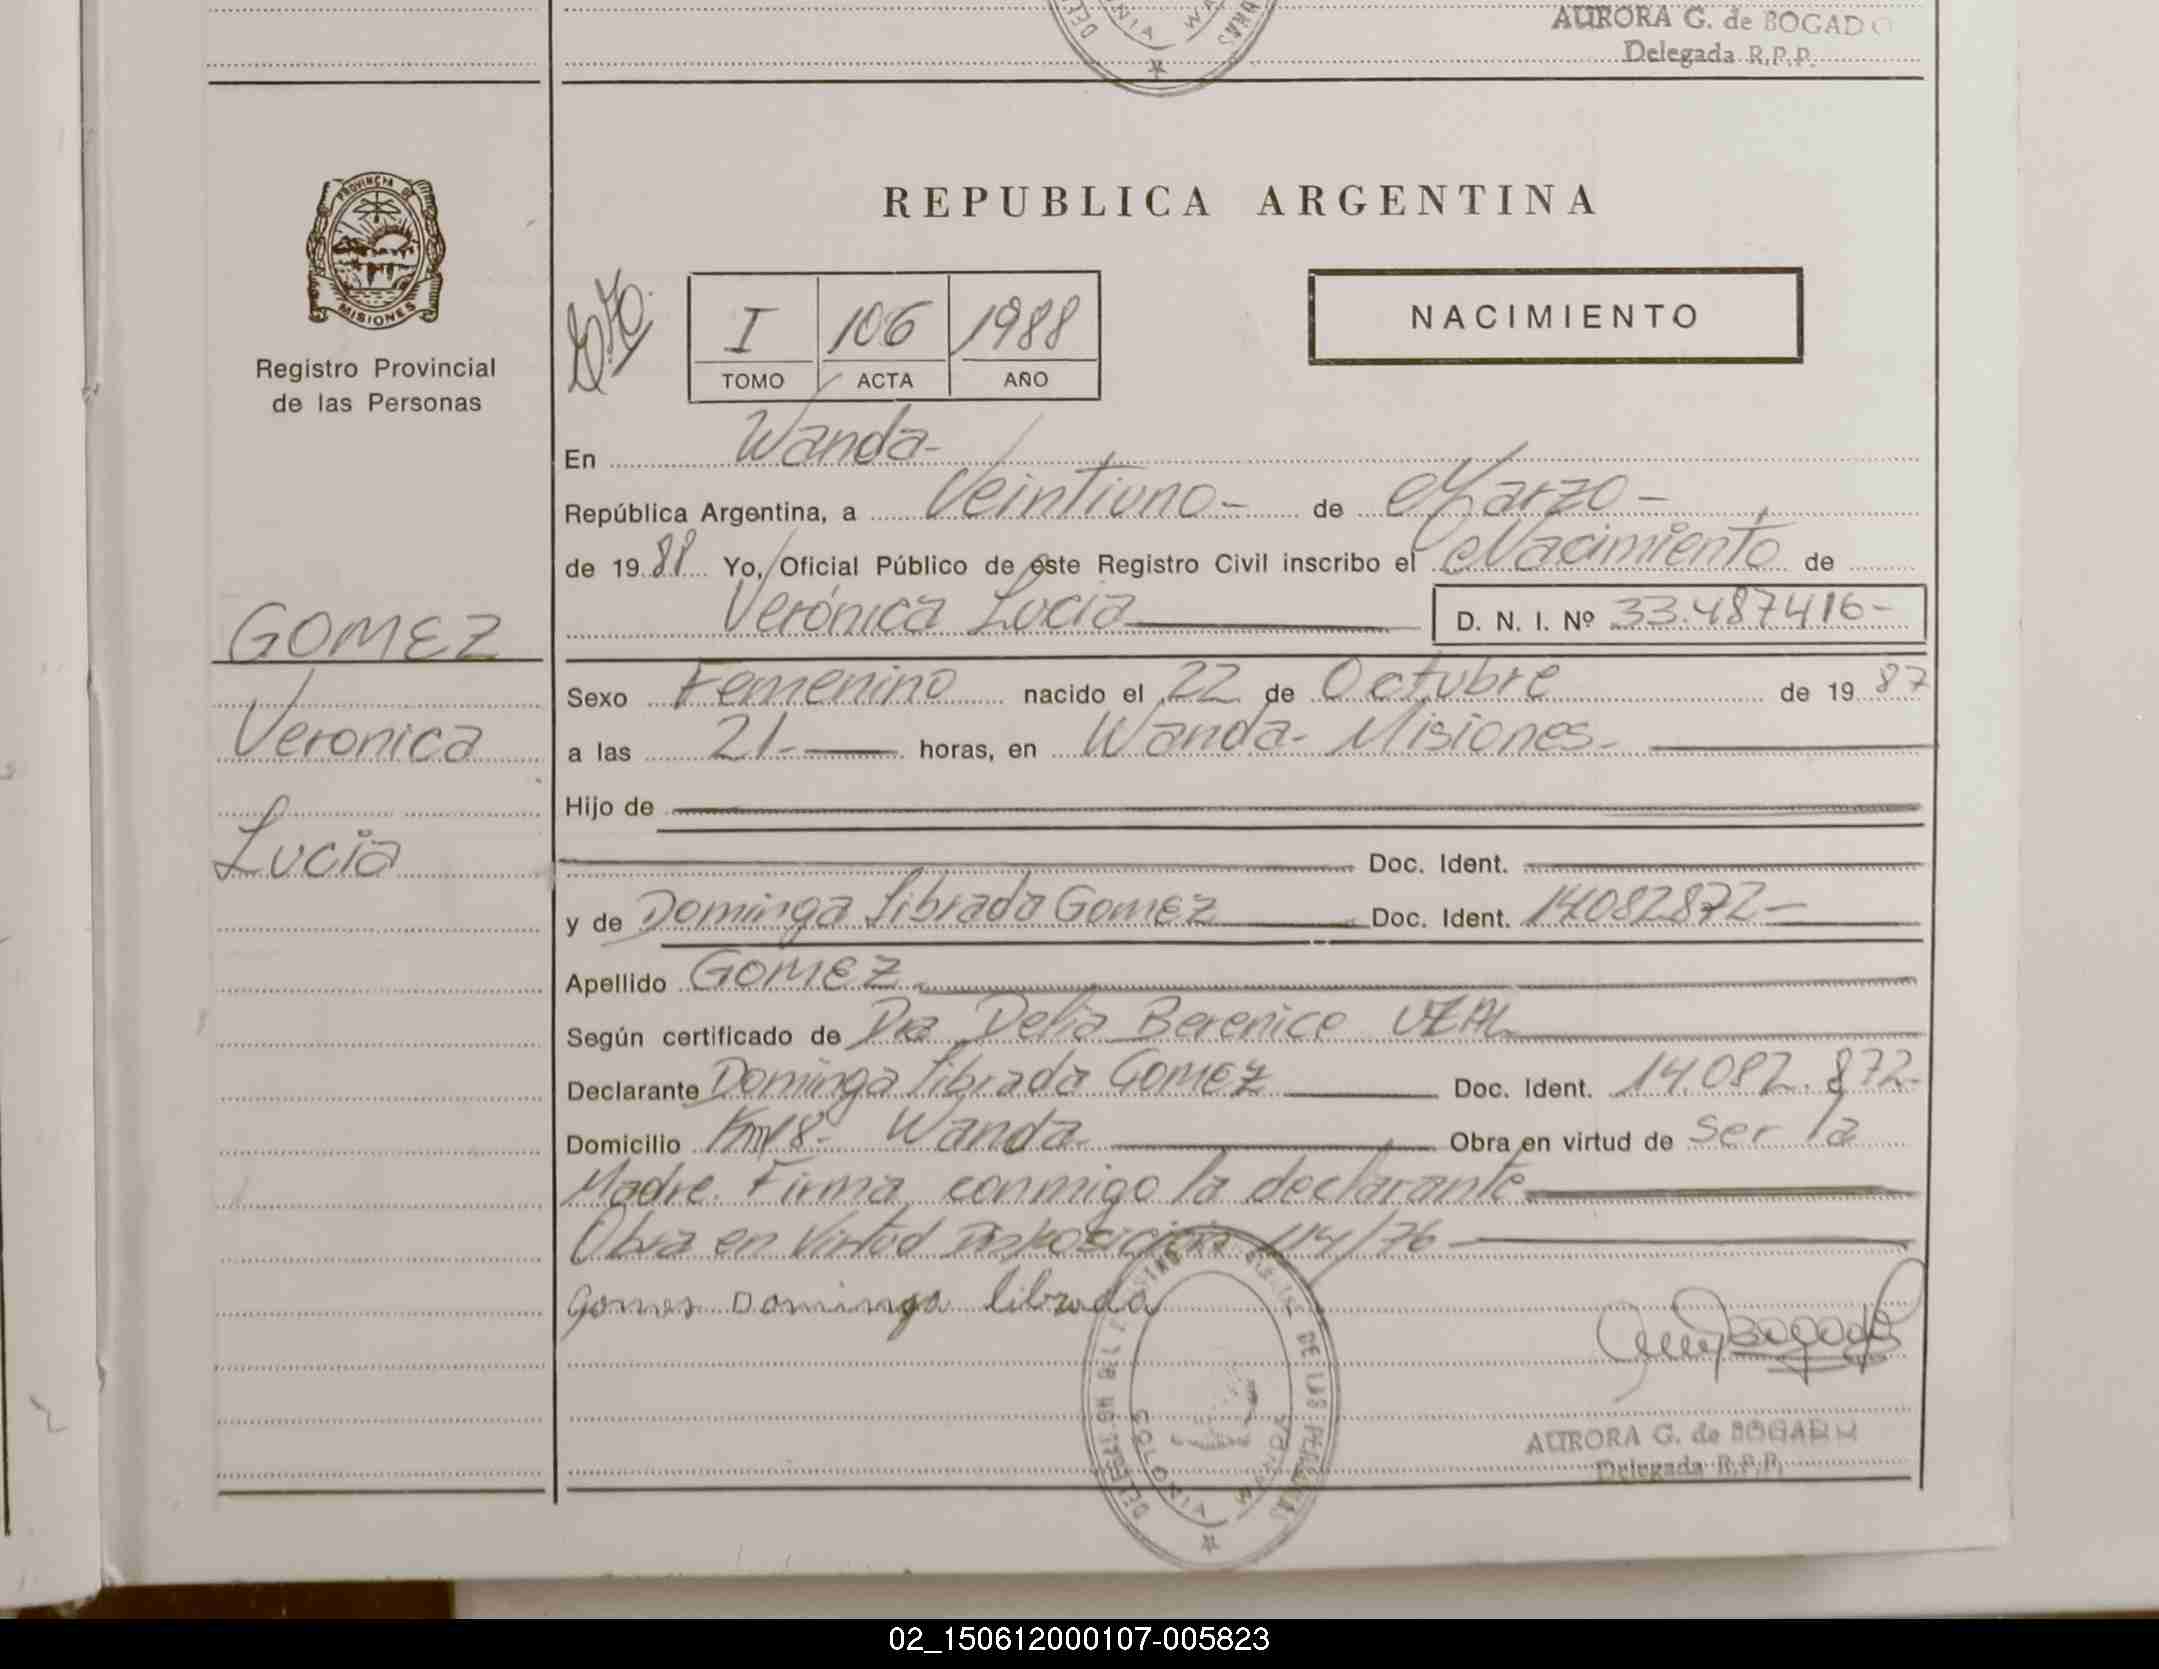 AURORA G. de BOGADO
Delegada R.P.P.
PROVINCIA DE
MISIONES
Registro Provincial
de las Personas
REPUBLICA ARGENTINA
I 106 1988
TOMO ACTA AÑO
NACIMIENTO
En Wanda-
República Argentina, a Veintiuno- de Marzo-
de 1988 Yo, Oficial Público de este Registro Civil inscribo el Nacimiento de
Verónica Lucia D. N. I. Nº 33.487416-
GOMEZ
Veronica
Lucia
Sexo Femenino nacido el 22 de Octubre de 1987
a las 21- horas, en Wanda- Misiones-
Hijo de
Doc. Ident.
y de Dominga Librada Gomez Doc. Ident. 14082872-
Apellido GOMEZ
Según certificado de Dra Delia Berenice UZAL
Declarante Dominga Librada Gomez Doc. Ident. 14.082.872-
Domicilio Km 8- Wanda Obra en virtud de ser la
Madre. Firma conmigo la declarante
Obra en Virtud Disposición 114/76
Gomes Dominga librada
DE LAS PERSONAS
COLONIA WANDA
AURORA G. de BOGADO
Delegada R.P.P.
02_150612000107-005823